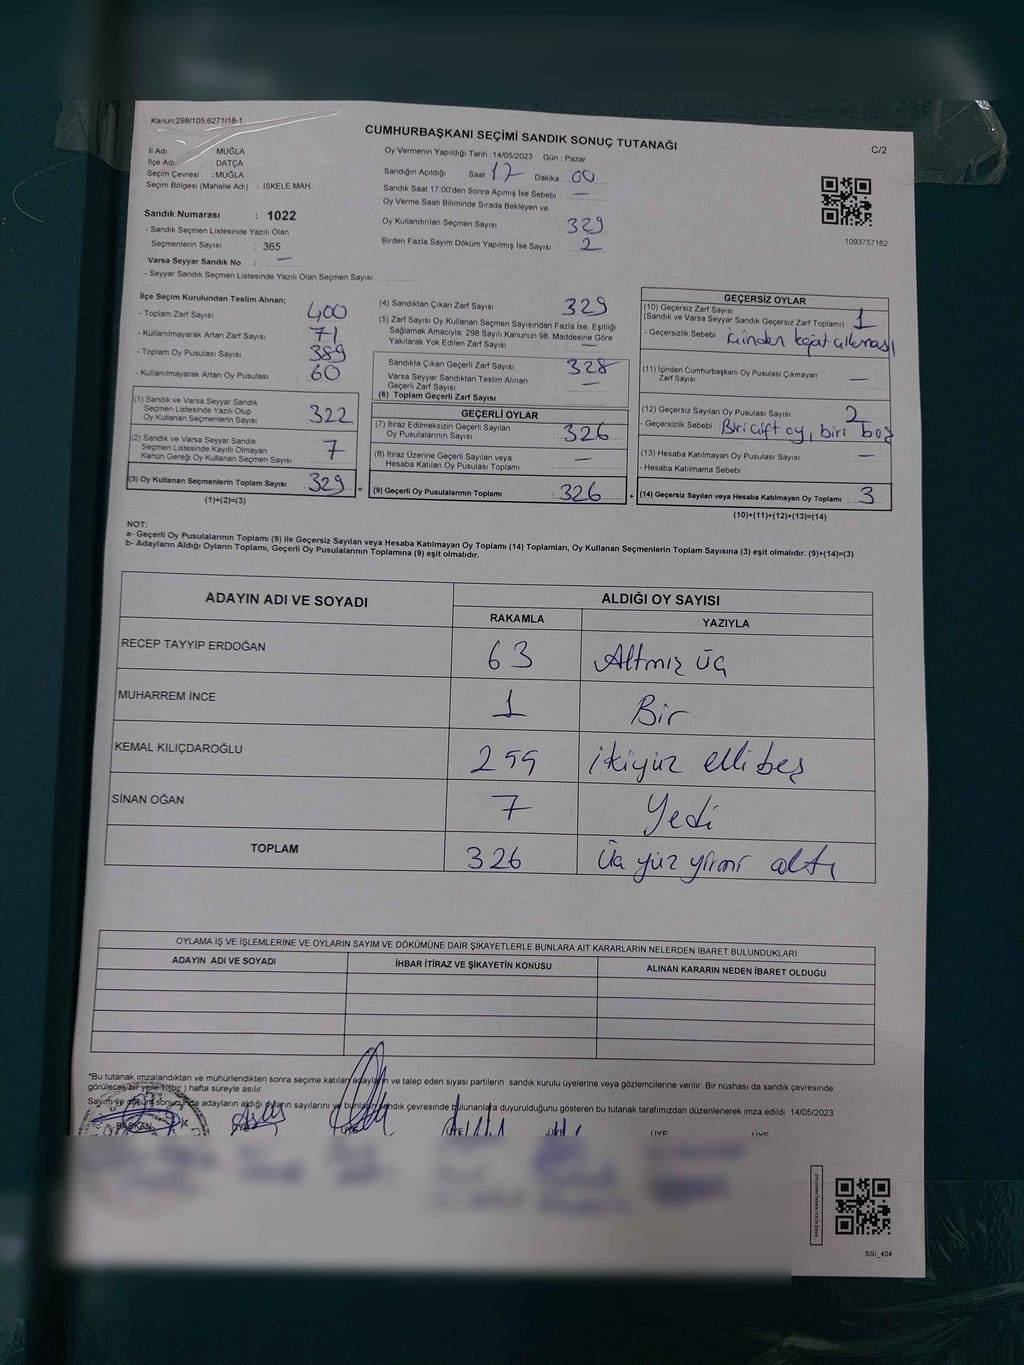 Kanun:298/105,6271/18-1
CUMHURBAŞKANI SEÇİMİ SANDIK SONUÇ TUTANAĞI
C/2
İl Adı : MUĞLA
İlçe Adı : DATÇA
Seçim Çevresi : MUĞLA
Seçim Bölgesi (Mahalle Adı) : İSKELE MAH.
Sandık Numarası : 1022
- Sandık Seçmen Listesinde Yazılı Olan
Seçmenlerin Sayısı : 365
Varsa Seyyar Sandık No : —
- Seyyar Sandık Seçmen Listesinde Yazılı Olan Seçmen Sayısı:
Oy Vermenin Yapıldığı Tarih :14/05/2023 Gün : Pazar
Sandığın Açıldığı Saat 17 Dakika 00
Sandık Saat 17.00'den Sonra Açımış İse Sebebi : —
Oy Verme Saati Bitiminde Sırada Bekleyen ve
Oy Kullandırılan Seçmen Sayısı : 329
Birden Fazla Sayım Döküm Yapılmış İse Sayısı : 2
1093757162
İlçe Seçim Kurulundan Teslim Alınan;
- Toplam Zarf Sayısı : 400
- Kullanılmayarak Artan Zarf Sayısı : 71
- Toplam Oy Pusulası Sayısı : 389
- Kullanılmayarak Artan Oy Pusulası : 60
(1) Sandık ve Varsa Seyyar Sandık
Seçmen Listesinde Yazılı Olup
Oy Kullanan Seçmenlerin Sayısı : 322
(2) Sandık ve Varsa Seyyar Sandık
Seçmen Listesinde Kayıtlı Olmayan
Kanun Gereği Oy Kullanan Seçmen Sayısı : 7
(3) Oy Kullanan Seçmenlerin Toplam Sayısı : 329 =
(1)+(2)=(3)
(4) Sandıktan Çıkan Zarf Sayısı : 329
(5) Zarf Sayısı Oy Kullanan Seçmen Sayısından Fazla İse, Eşitliği
Sağlamak Amacıyla, 298 Sayılı Kanunun 98. Maddesine Göre
Yakılarak Yok Edilen Zarf Sayısı : —
Sandıkta Çıkan Geçerli Zarf Sayısı : 328
Varsa Seyyar Sandıktan Teslim Alınan
Geçerli Zarf Sayısı : —
(6) Toplam Geçerli Zarf Sayısı :
GEÇERLİ OYLAR
(7) İtiraz Edilmeksizin Geçerli Sayılan
Oy Pusulalarının Sayısı : 326
(8) İtiraz Üzerine Geçerli Sayılan veya
Hesaba Katılan Oy Pusulası Toplamı : —
(9) Geçerli Oy Pusulalarının Toplamı : 326 +
GEÇERSİZ OYLAR
(10) Geçersiz Zarf Sayısı
(Sandık ve Varsa Seyyar Sandık Geçersiz Zarf Toplamı) : 1
- Geçersizlik Sebebi : içinden kağıt çıkması
(11) İçinden Cumhurbaşkanı Oy Pusulası Çıkmayan
Zarf Sayısı : —
(12) Geçersiz Sayılan Oy Pusulası Sayısı : 2
- Geçersizlik Sebebi : Biri çift oy, biri boş
(13) Hesaba Katılmayan Oy Pusulası Sayısı : —
- Hesaba Katılmama Sebebi :
(14) Geçersiz Sayılan veya Hesaba Katılmayan Oy Toplamı : 3
(10)+(11)+(12)+(13)=(14)
NOT:
a- Geçerli Oy Pusulalarının Toplamı (9) ile Geçersiz Sayılan veya Hesaba Katılmayan Oy Toplamı (14) Toplamları, Oy Kullanan Seçmenlerin Toplam Sayısına (3) eşit olmalıdır. (9)+(14)=(3)
b- Adayların Aldığı Oyların Toplamı, Geçerli Oy Pusulalarının Toplamına (9) eşit olmalıdır.
ADAYIN ADI VE SOYADI
ALDIĞI OY SAYISI
RAKAMLA YAZIYLA
RECEP TAYYİP ERDOĞAN 63 Altmış üç
MUHARREM İNCE 1 Bir
KEMAL KILIÇDAROĞLU 255 ikiyüz ellibeş
SİNAN OĞAN 7 Yedi
TOPLAM 326 Üç yüz yirmi altı
OYLAMA İŞ VE İŞLEMLERİNE VE OYLARIN SAYIM VE DÖKÜMÜNE DAİR ŞİKAYETLERLE BUNLARA AİT KARARLARIN NELERDEN İBARET BULUNDUKLARI
ADAYIN ADI VE SOYADI İHBAR İTİRAZ VE ŞİKAYETİN KONUSU ALINAN KARARIN NEDEN İBARET OLDUĞU
*Bu tutanak imzalandıktan ve mühürlendikten sonra seçime katılan adayların ve talep eden siyasi partilerin sandık kurulu üyelerine veya gözlemcilerine verilir. Bir nüshası da sandık çevresinde
görülecek bir yere 1(bir ) hafta süreyle asılır.
Sayım ve döküm sonucunda adayların aldığı oyların sayılarını ve bunların sandık çevresinde bulunanlara duyurulduğunu gösteren bu tutanak tarafımızdan düzenlenerek imza edildi. 14/05/2023
BAŞKAN ÜYE ÜYE ÜYE ÜYE ÜYE
SSİ_404